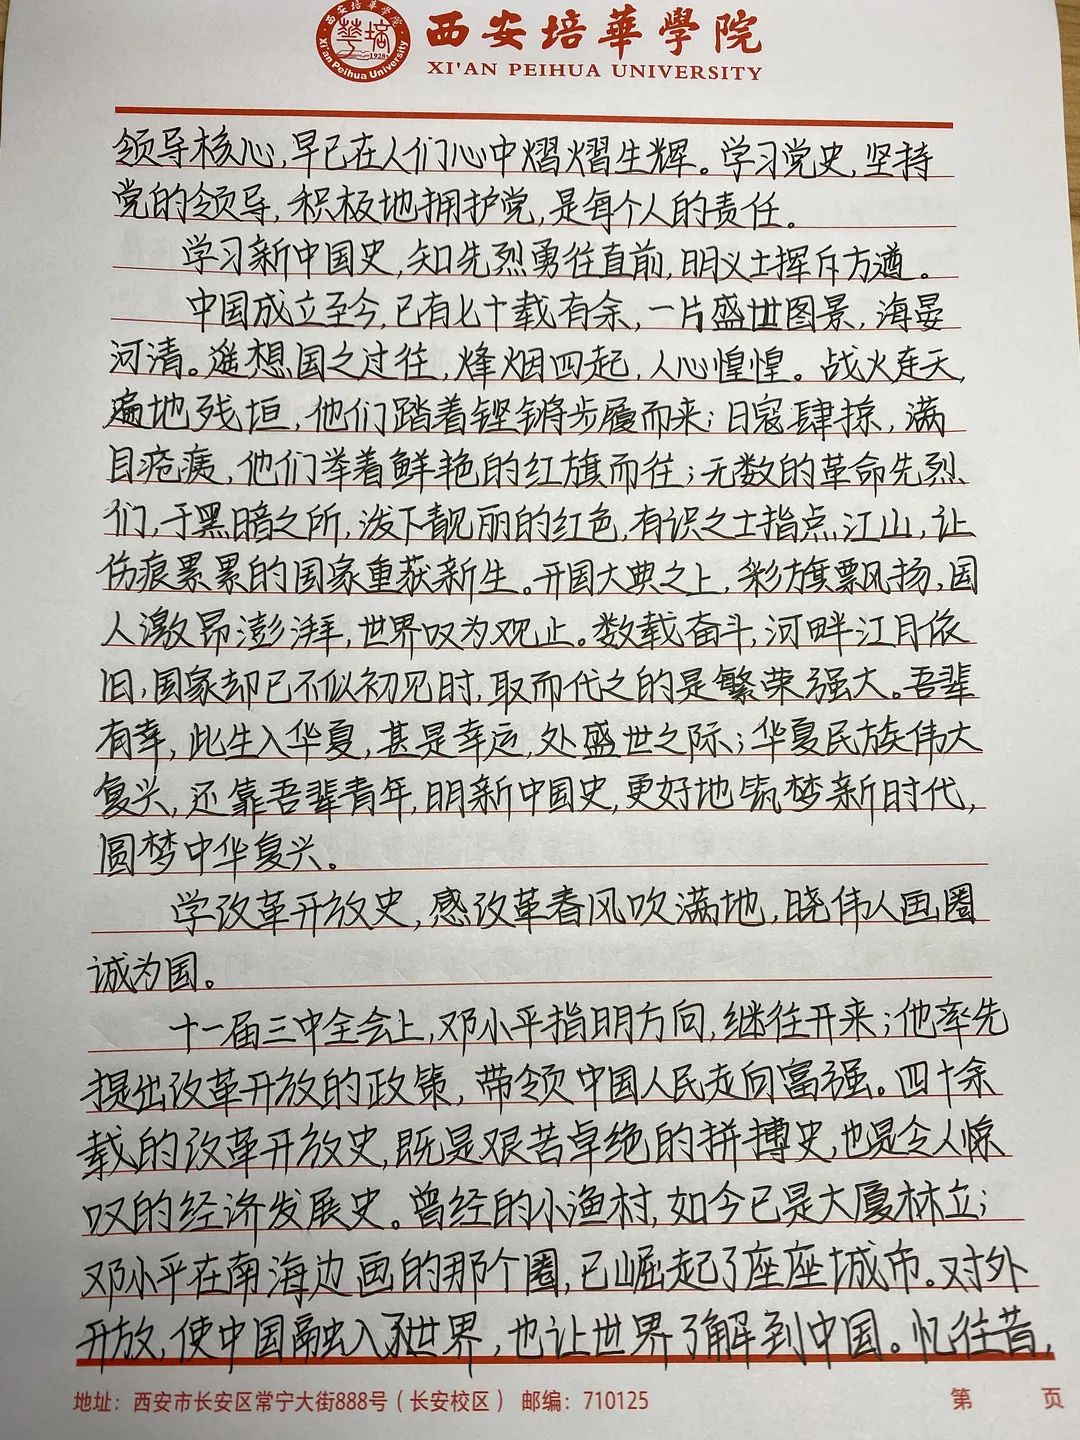 西安培華學院
XI'AN PEIHUA UNIVERSITY
领导核心,早已在人们心中熠熠生辉。学习党史,坚持
党的领导,积极地拥护党,是每个人的责任。
学习新中国史,知先烈勇往直前,明义士挥斥方遒。
中国成立至今,已有七十载有余,一片盛世图景,海晏
河清。遥想国之过往,烽烟四起,人心惶惶。战火连天,
遍地残垣,他们踏着铿锵步履而来;日寇肆掠,满
目疮痍,他们举着鲜艳的红旗而往;无数的革命先烈
们,于黑暗之所,泼下靓丽的红色,有识之士指点江山,让
伤痕累累的国家重获新生。开国大典之上,彩旗飘扬,国
人激昂澎湃,世界叹为观止。数载奋斗,河畔江月依
旧,国家却已不似初见时,取而代之的是繁荣强大。吾辈
有幸,此生入华夏,甚是幸运,处盛世之际;华夏民族伟大
复兴,还靠吾辈青年,明新中国史,更好地筑梦新时代,
圆梦中华复兴。
学改革开放史,感改革春风吹满地,晓伟人画圈
诚为国。
十一届三中全会上,邓小平指明方向,继往开来;他率先
提出改革开放的政策,带领中国人民走向富强。四十余
载的改革开放史,既是艰苦卓绝的拼搏史,也是令人惊
叹的经济发展史。曾经的小渔村,如今已是大厦林立;
邓小平在南海边画的那个圈,已崛起了座座城市。对外
开放,使中国融入了世界,也让世界了解到中国。忆往昔,
地址:西安市长安区常宁大街888号(长安校区) 邮编:710125
第 页